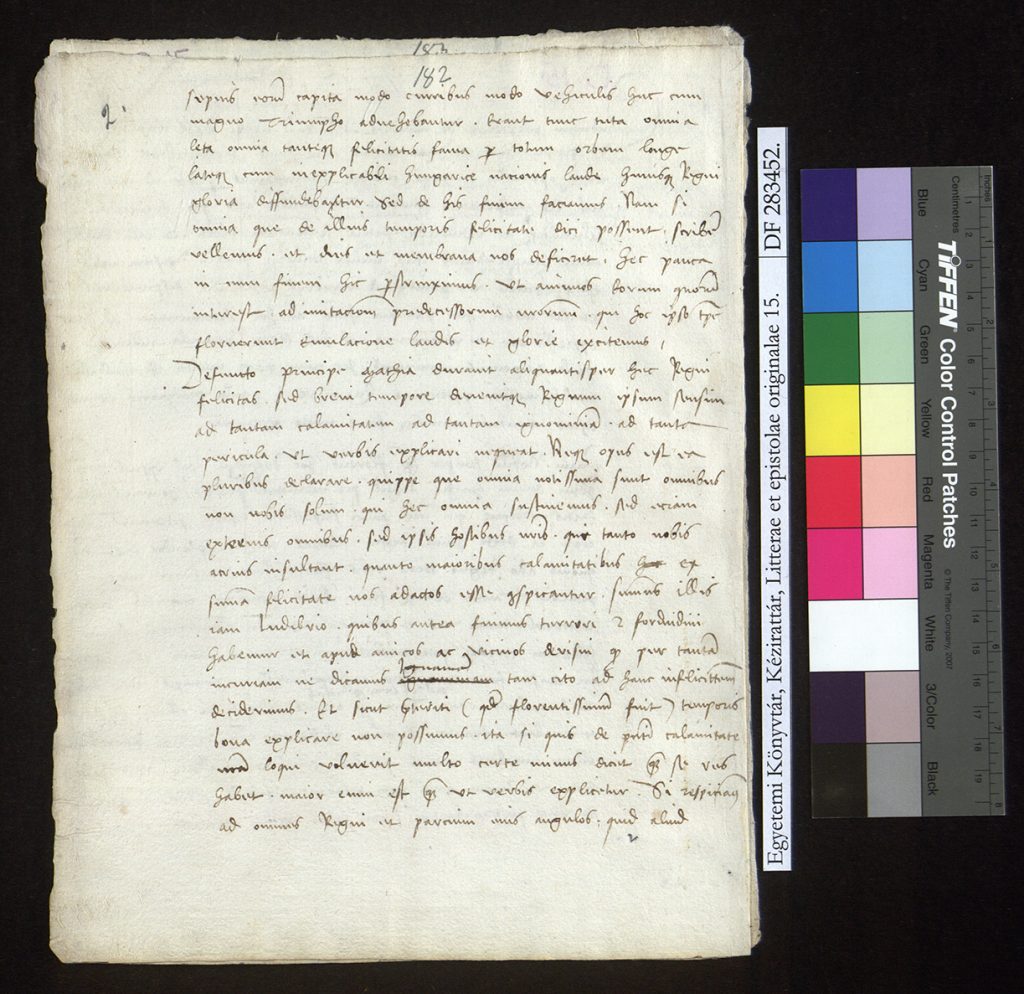 183
182
2
sepius eorum capita modo curribus modo vehiculis huc cum
magno Triumpho aduehebantur. Erant tunc tuta omnia
leta omnia tanteque felicitatis fama per totum orbem longe
lateque cum inexplicabili hungarice nacionis laude huiusque Regni
gloria diffundebatur Sed de his finem faciamus Nam si
omnia que de illius temporis felicitate dici possent. scribere
vellemus. et dies et membrana nos deficeret. hec pauca
in eum finem hic perstrinximus. Ut animos eorum quorum
interest ad imitacionem predecessorum vestrorum. qui hoc ipso tempore
floruerunt Emulacione laudis et glorie excitemus,
Defuncto principe Mathia durauit aliquantisper hec Regni
felicitas sed breui tempore deuenitque Regnum ipsum sensim
ad tantam calamitatem ad tantam ignominiam. ad tanta
pericula. ut verbis explicari nequeat. Neque opus est ea
pluribus declarare. quippe que omnia notissima sunt omnibus
non nobis solum. qui hec omnia sustinemus. sed eciam
externis omnibus. sed ipsis hostibus nostris. qui tanto nobis
acrius insultant. quanto maioribus calamitatibus ex
summa felicitate nos adactos esse conspicantur. sumus illis
iam ludibrio. quibus antea fuimus terrori & formidini
habemur et apud amicos ac vicinos derisui quod per tantam
incuriam ne dicamus ignauiam tam cito ad hanc infelicitatem
deciderimus. Et sicut preteriti (quod florentissimum fuit) temporis
bona explicare non possumus. ita si quis de presenti calamitate
nostra loqui voluerit multo certe minus dicet quam se res
habet. maior enim est quam ut verbis explicetur. Si respiciamus
ad omnes Regni et parcium eius angulos. quid aliud
2
Egyetemi Könyvtár, Kézirattár, Litterae et epistolae originalae 15. DF 283452.
Inches
Centimetres
TIFFEN® Color Control Patches
© The Tiffen Company, 2007
Blue
Cyan
Green
Yellow
Red
Magenta
White
3/Color
Black